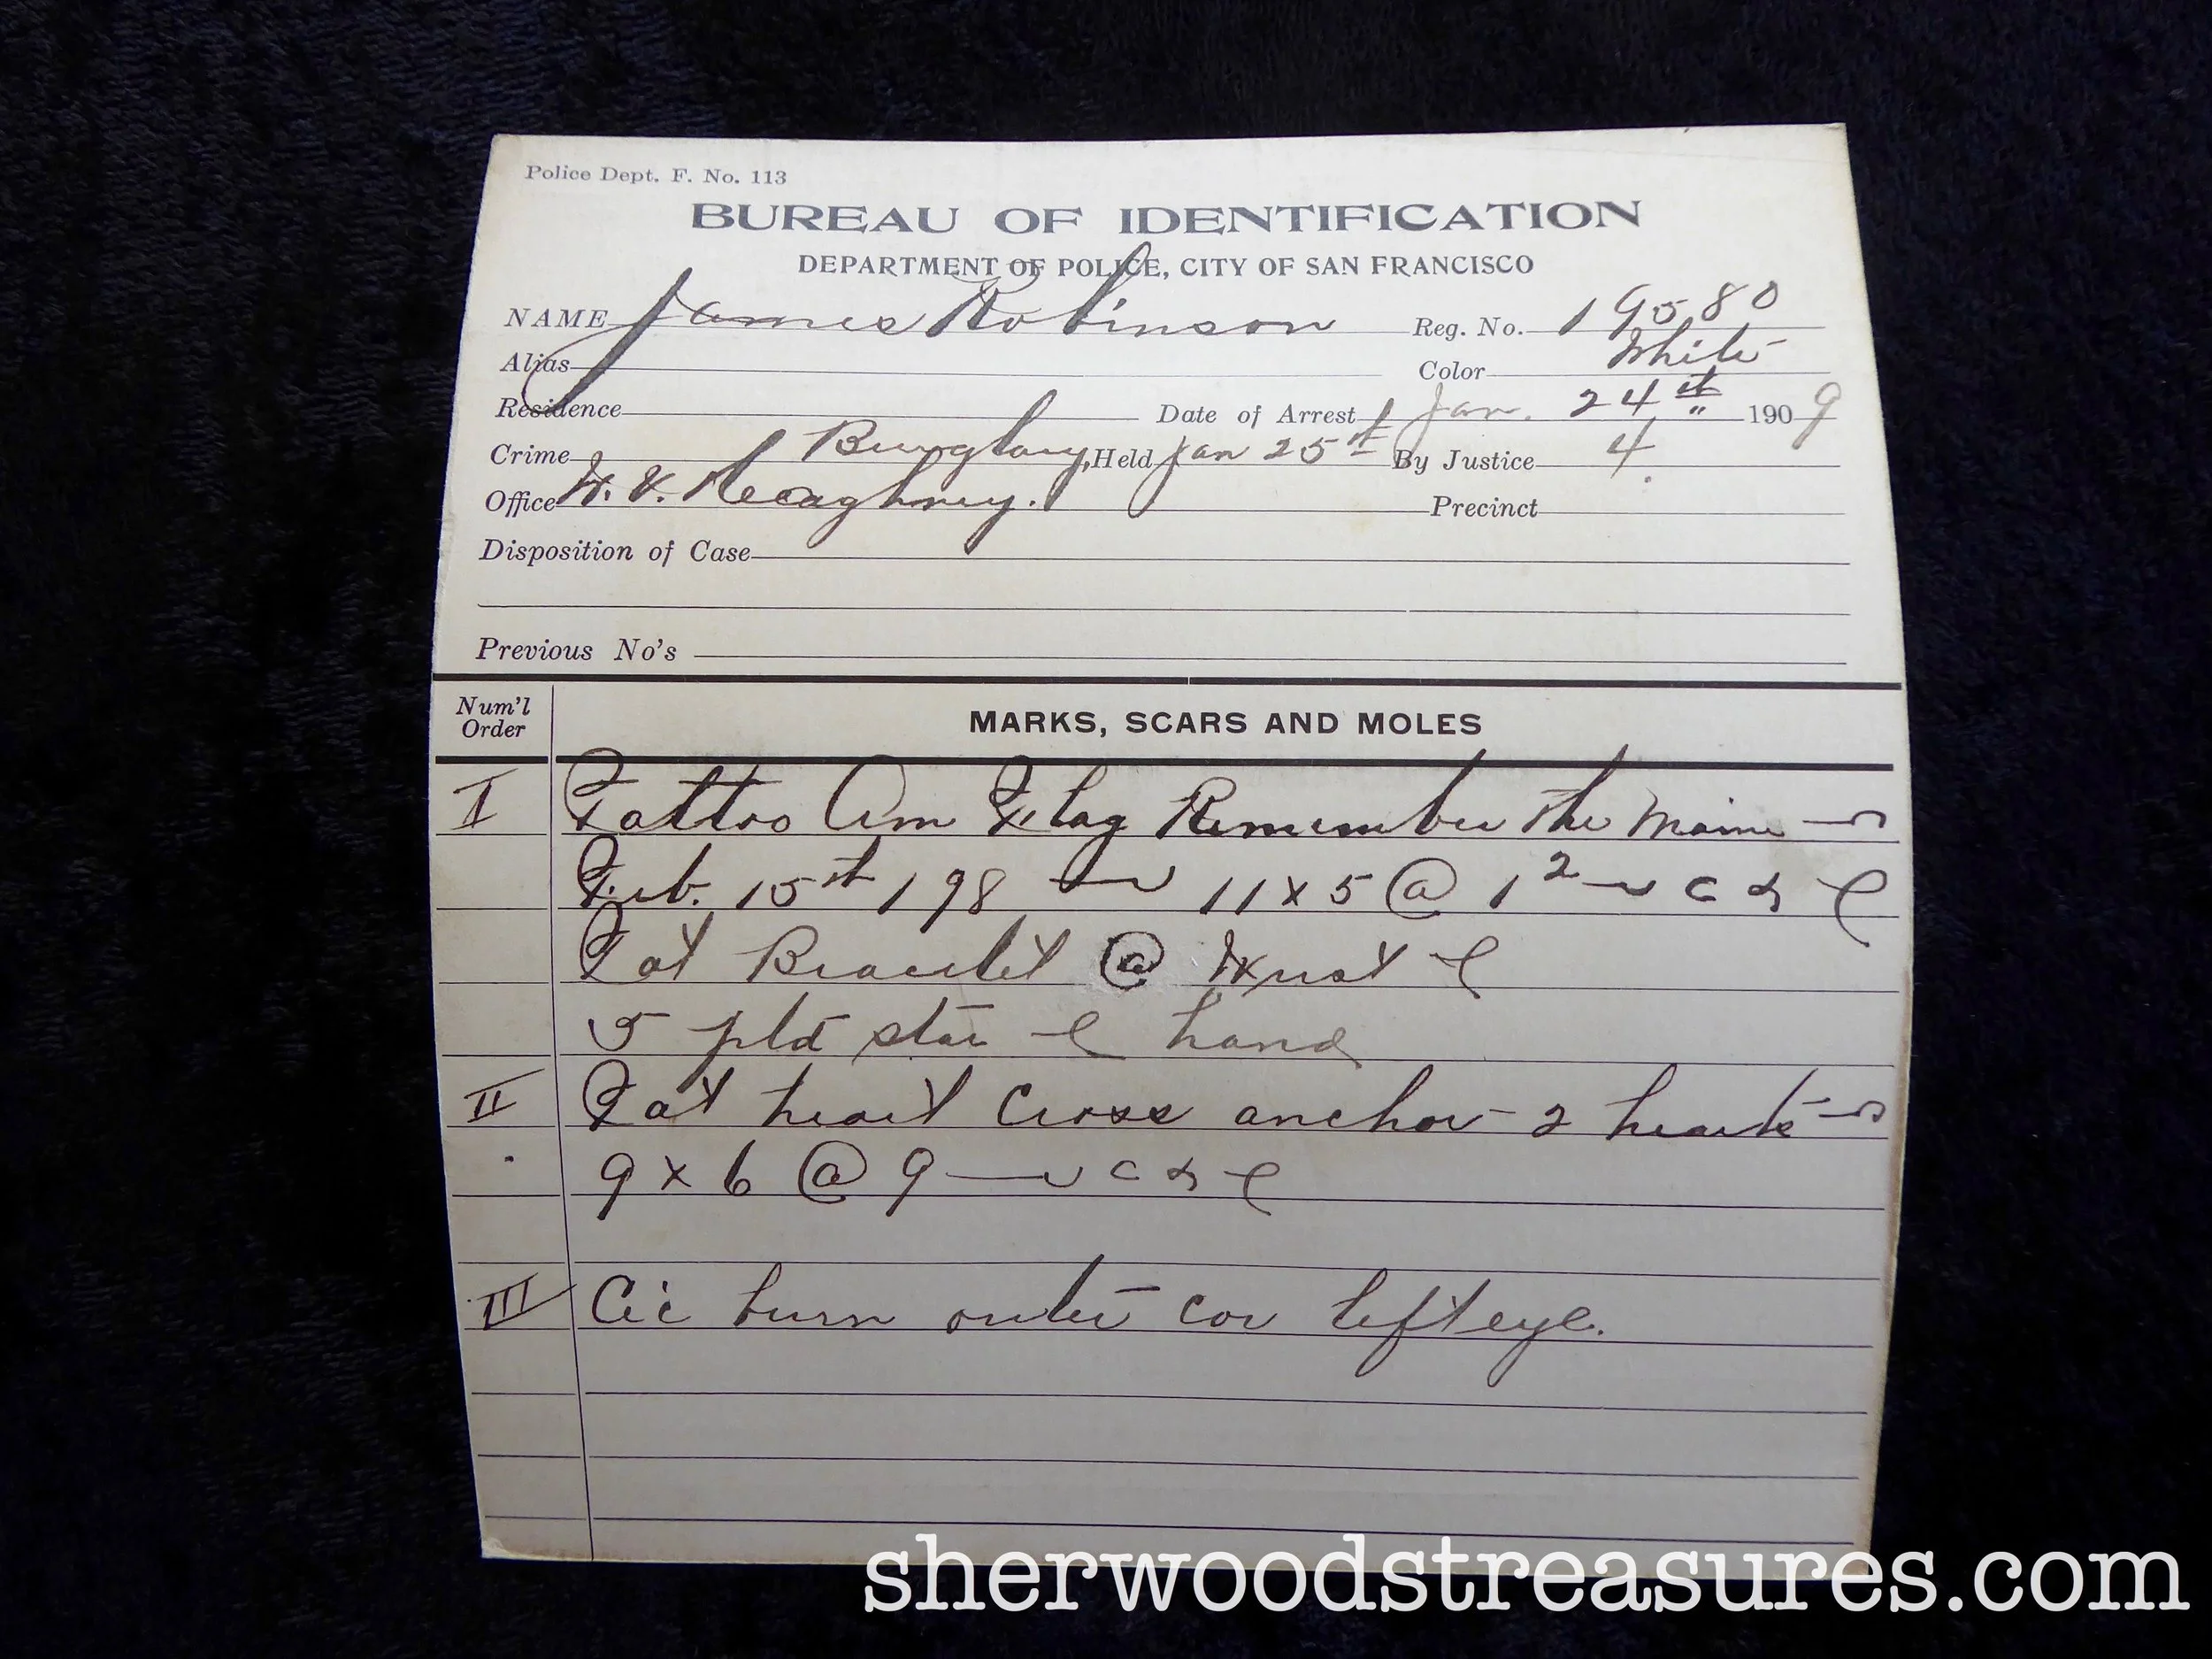 Police Dept. F. No. 113
BUREAU OF IDENTIFICATION
DEPARTMENT OF POLICE, CITY OF SAN FRANCISCO
NAME James Robinson Reg. No. 19580
Alias Color White
Residence Date of Arrest Jan. 24 st 1909
Crime Burglary, Held Jan 25 st By Justice 4
Office Precinct
Disposition of Case
Previous No's
Num'l Order MARKS, SCARS AND MOLES
I Tattoo Am Flag Remember the Maine
Feb. 15 st 198 11 x 5 @ 1 2
Tat Bracelet @ Wrist
5 ptd star hand
II Tat heart Cross anchor - 2 hearts
9 x 6 @ 9
III Cic burn outer cor left eye.
sherwoodstreasures.com